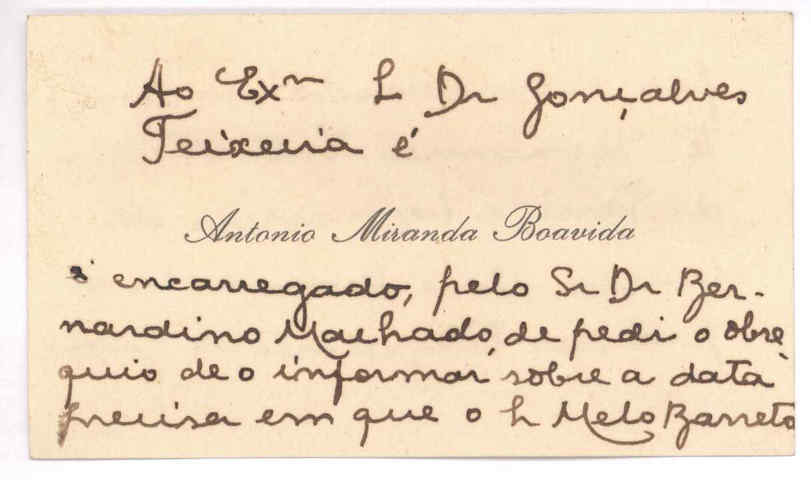 Ao Exm Sr Dr Gonçalves
Teixeira é
Antonio Miranda Boavida
encarregado, pelo Sr Dr Ber-
nardino Machado, de pedi o obse
quio de o informar, sobre a data
precisa em que o Sr Melo Barreto